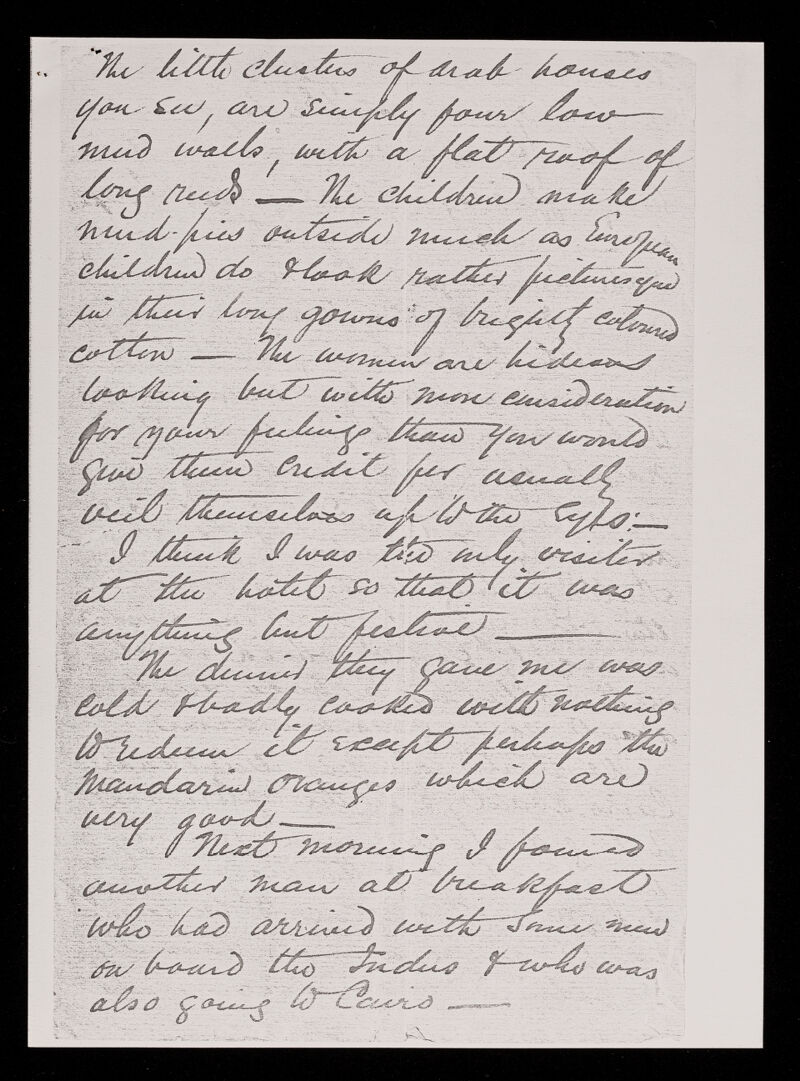 The little clusters of arab houses
you see, are simply four low
mud walls, with a flat roof of
long reeds — The children make
mud-pies outside much as European
children do & look rather picturesque
in their long gowns of brightly coloured
cotton — The women are hideous
looking but with more consideration
for your feelings than you would
give them credit for usually
veil themselves up to the eyes: —
I think I was the only visitor
at the hotel so that it was
anything but festive —
The dinner they gave me was
cold & badly cooked with nothing
to redeem it except perhaps the
Mandarin oranges which are
very good —
Next morning I found
another man at breakfast
who had arrived with some men
on board the Indus & who was
also going to Cairo —